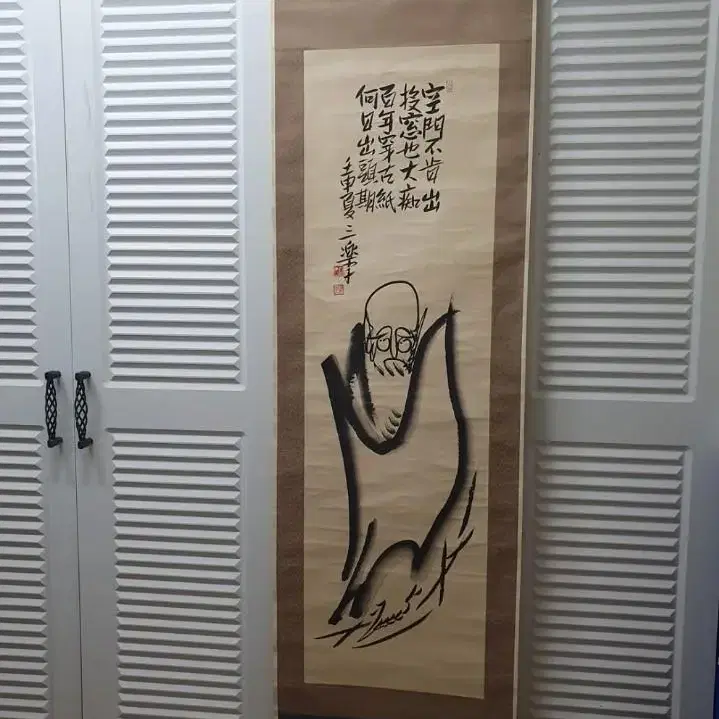 空門不肯出
投窓也大痴
百年穿古紙
何日出頭期
壬申夏 三樂